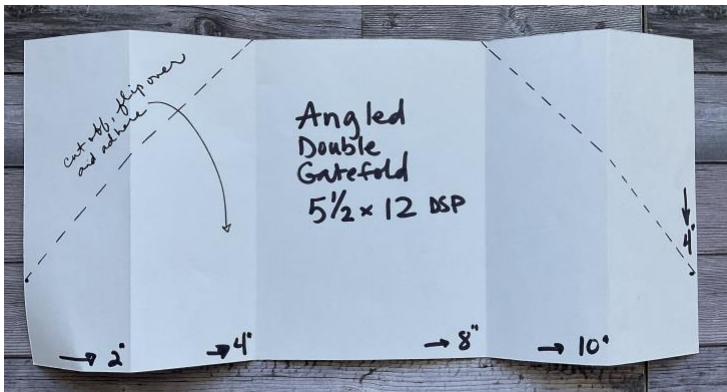 cut off, flip over
and adhere
Angled
Double
Gatefold
5 1/2 x 12 DSP
4"
→ 2"
→ 4"
→ 8"
→ 10"